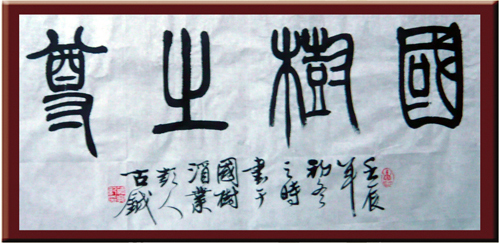 國樹之尊
壬辰
年
初冬
之時
書于
國樹
酒業
彭人
古鉞